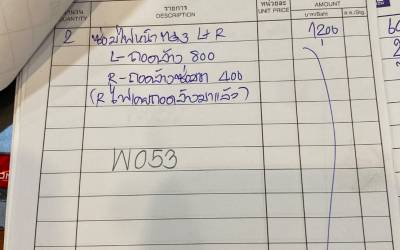 จำนวน รายการ หน่วยละ จำนวนเงิน
QUANTITY DESCRIPTION UNIT PRICE AMOUNT
2 ซ่อมไฟหน้า L+R 1200
L- ถอดล้าง 800
R- ถอดล้าง 400
(R ไฟเคยถอดล้างมาแล้ว)
W053